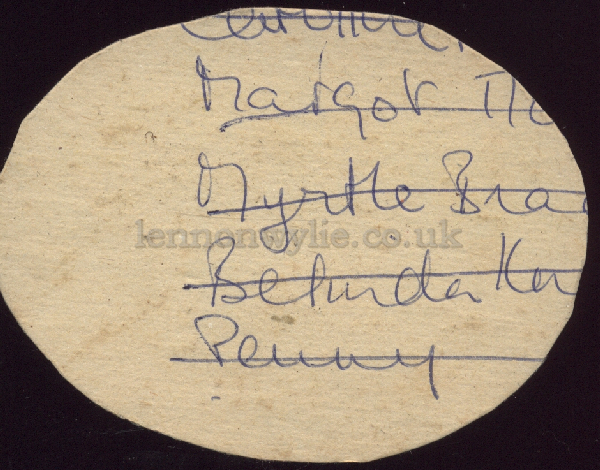 Margot
Myrtle Bra
lennonwylie.co.uk
Belinda
Penny